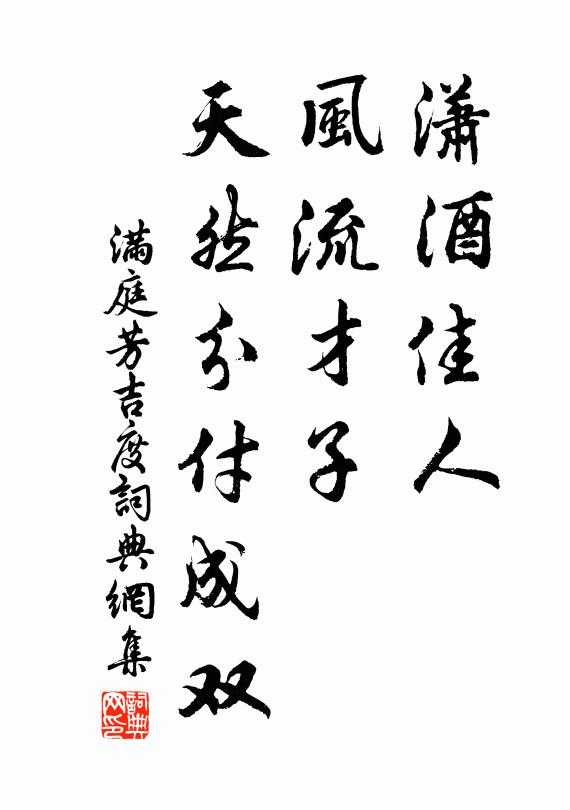 瀟酒佳人
風流才子
天然分付成双
滿庭芳吉度詞典網集
詞典
网印